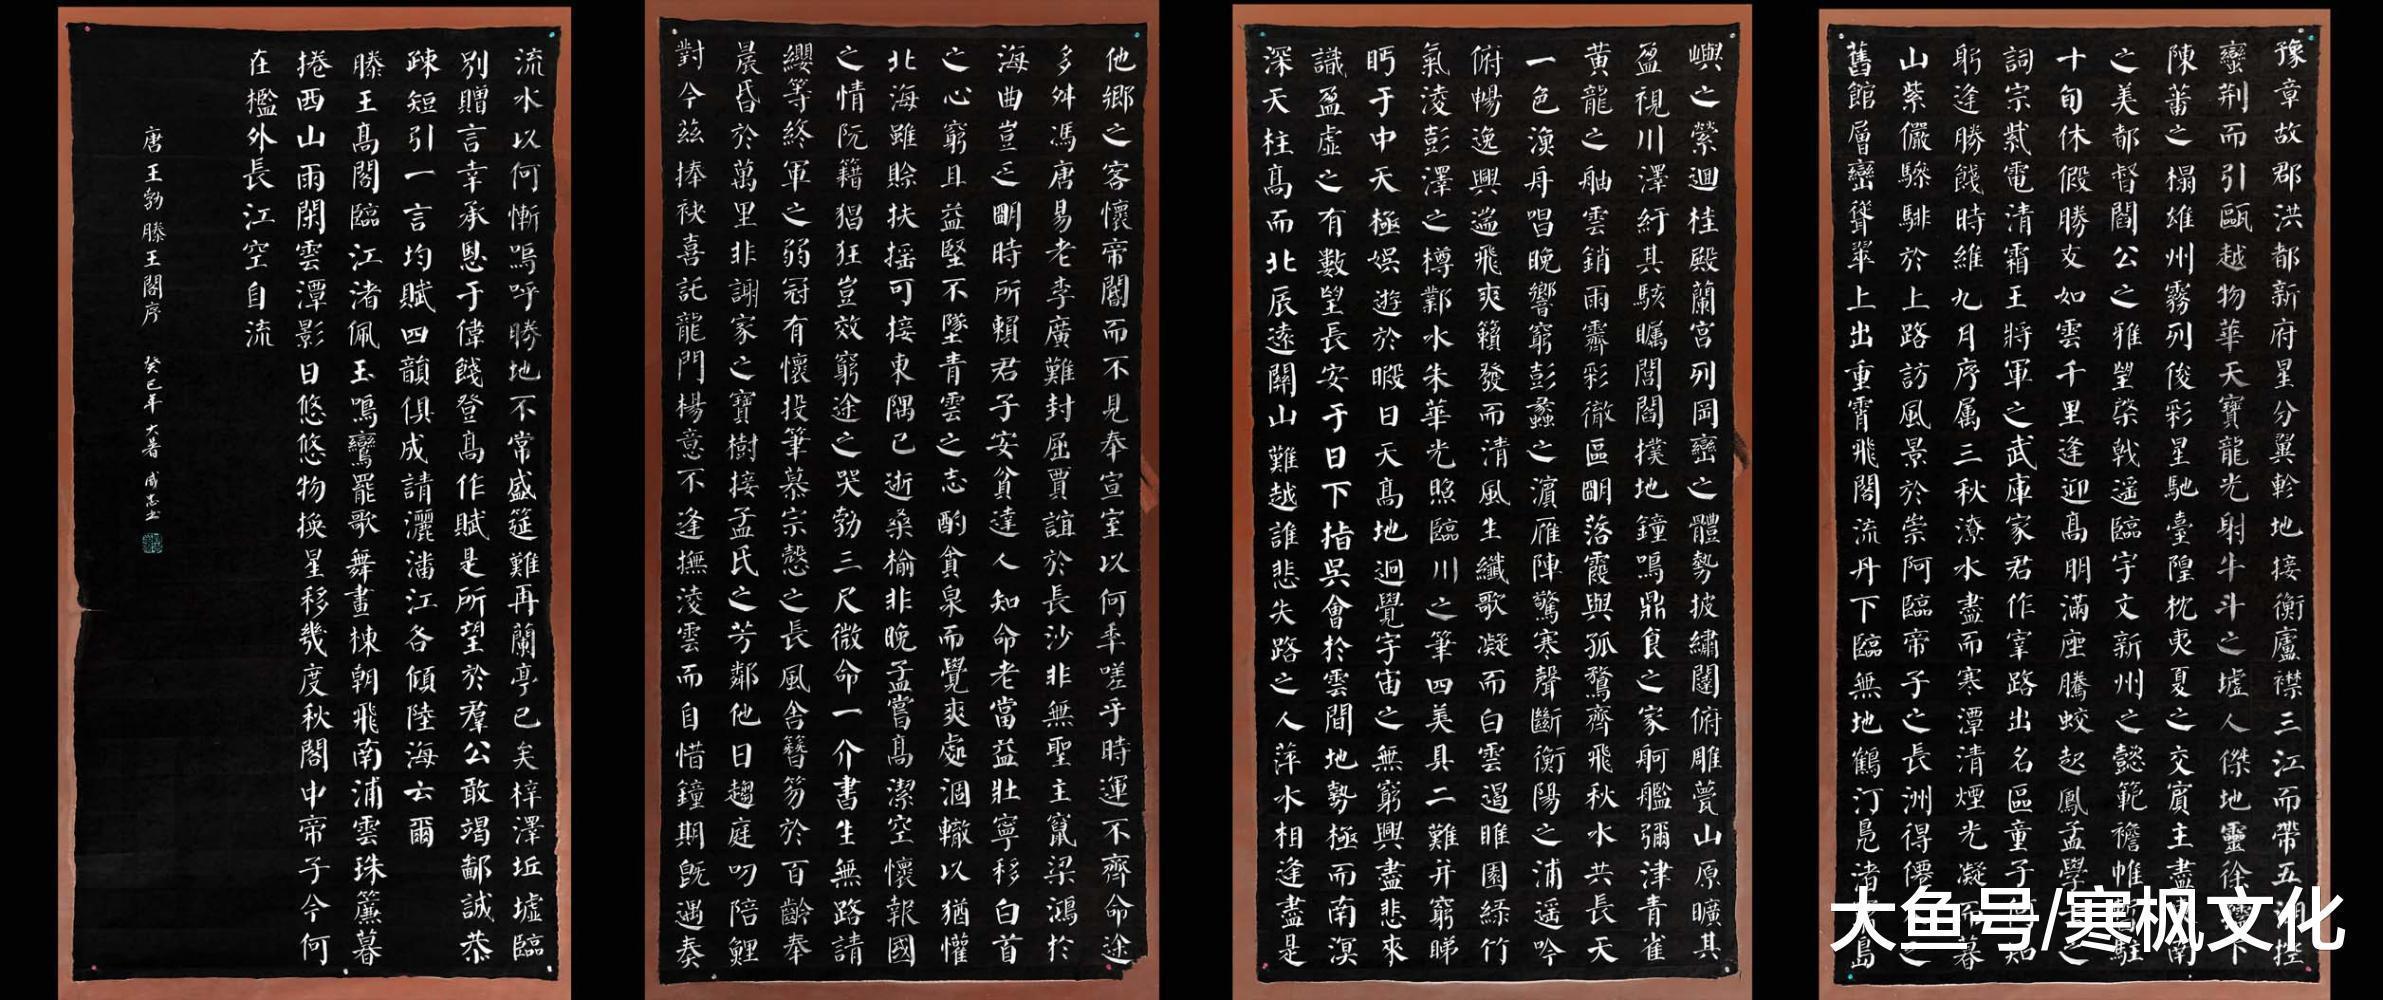 豫章故郡洪都新府星分翼軫地接衡廬襟三江而帶五湖控
蠻荊而引甌越物華天寶龍光射牛斗之墟人傑地靈徐孺下
陳蕃之榻雄州霧列俊彩星馳臺隍枕夷夏之交賓主盡東南
之美都督閻公之雅望棨戟遥臨宇文新州之懿範襜帷暫駐
十旬休假勝友如雲千里逢迎高朋滿座騰蛟起鳳孟學士之
詞宗紫電清霜王將軍之武庫家君作宰路出名區童子何知
躬逢勝餞時維九月序属三秋潦水盡而寒潭清煙光凝而暮
山紫儼驂騑於上路訪風景於崇阿臨帝子之長洲得僊人之
舊館層巒聳翠上出重霄飛閣流丹下臨無地鶴汀鳧渚窮島
嶼之縈迴桂殿蘭宮列岡巒之體勢披繡闥俯雕甍山原曠其
盈視川澤紆其駭矚閭閻撲地鐘鳴鼎食之家舸艦彌津青雀
黃龍之舳雲銷雨霽彩徹區明落霞與孤鶩齊飛秋水共長天
一色漁舟唱晚響窮彭蠡之濱雁陣驚寒聲斷衡陽之浦遥吟
俯暢逸興遄飛爽籟發而清風生纖歌凝而白雲遏睢園緑竹
氣淩彭澤之樽鄴水朱華光照臨川之筆四美具二難并窮睇
眄于中天極娛遊於暇日天高地迥覺宇宙之無窮興盡悲來
識盈虛之有數望長安于日下指吳會於雲間地勢極而南溟
深天柱高而北辰遠關山難越誰悲失路之人萍水相逢盡是
他鄉之客懷帝閽而不見奉宣室以何年嗟乎時運不齊命途
多舛馮唐易老李廣難封屈賈誼於長沙非無聖主竄梁鴻於
海曲豈乏明時所賴君子安貧達人知命老當益壯寧移白首
之心窮且益堅不墜青雲之志酌貪泉而覺爽處涸轍以猶懽
北海雖賒扶搖可接東隅已逝桑榆非晚孟嘗高潔空懷報國
之情阮籍猖狂豈效窮途之哭勃三尺微命一介書生無路請
纓等終軍之弱冠有懷投筆慕宗愨之長風舍簪笏於百齡奉
晨昏於萬里非謝家之寶樹接孟氏之芳鄰他日趨庭叨陪鯉
對今茲捧袂喜託龍門楊意不逢撫淩雲而自惜鐘期既遇奏
流水以何慚嗚呼勝地不常盛筵難再蘭亭已矣梓澤坵墟臨
別贈言幸承恩于偉餞登高作賦是所望於羣公敢竭鄙誠恭
疎短引一言均賦四韻俱成請灑潘江各傾陸海云爾
滕王高閣臨江渚佩玉鳴鸞罷歌舞畫棟朝飛南浦雲珠簾暮
捲西山雨閑雲潭影日悠悠物換星移幾度秋閣中帝子今何
在檻外長江空自流
唐王勃滕王閣序 癸巳年大暑
大鱼号/寒枫文化